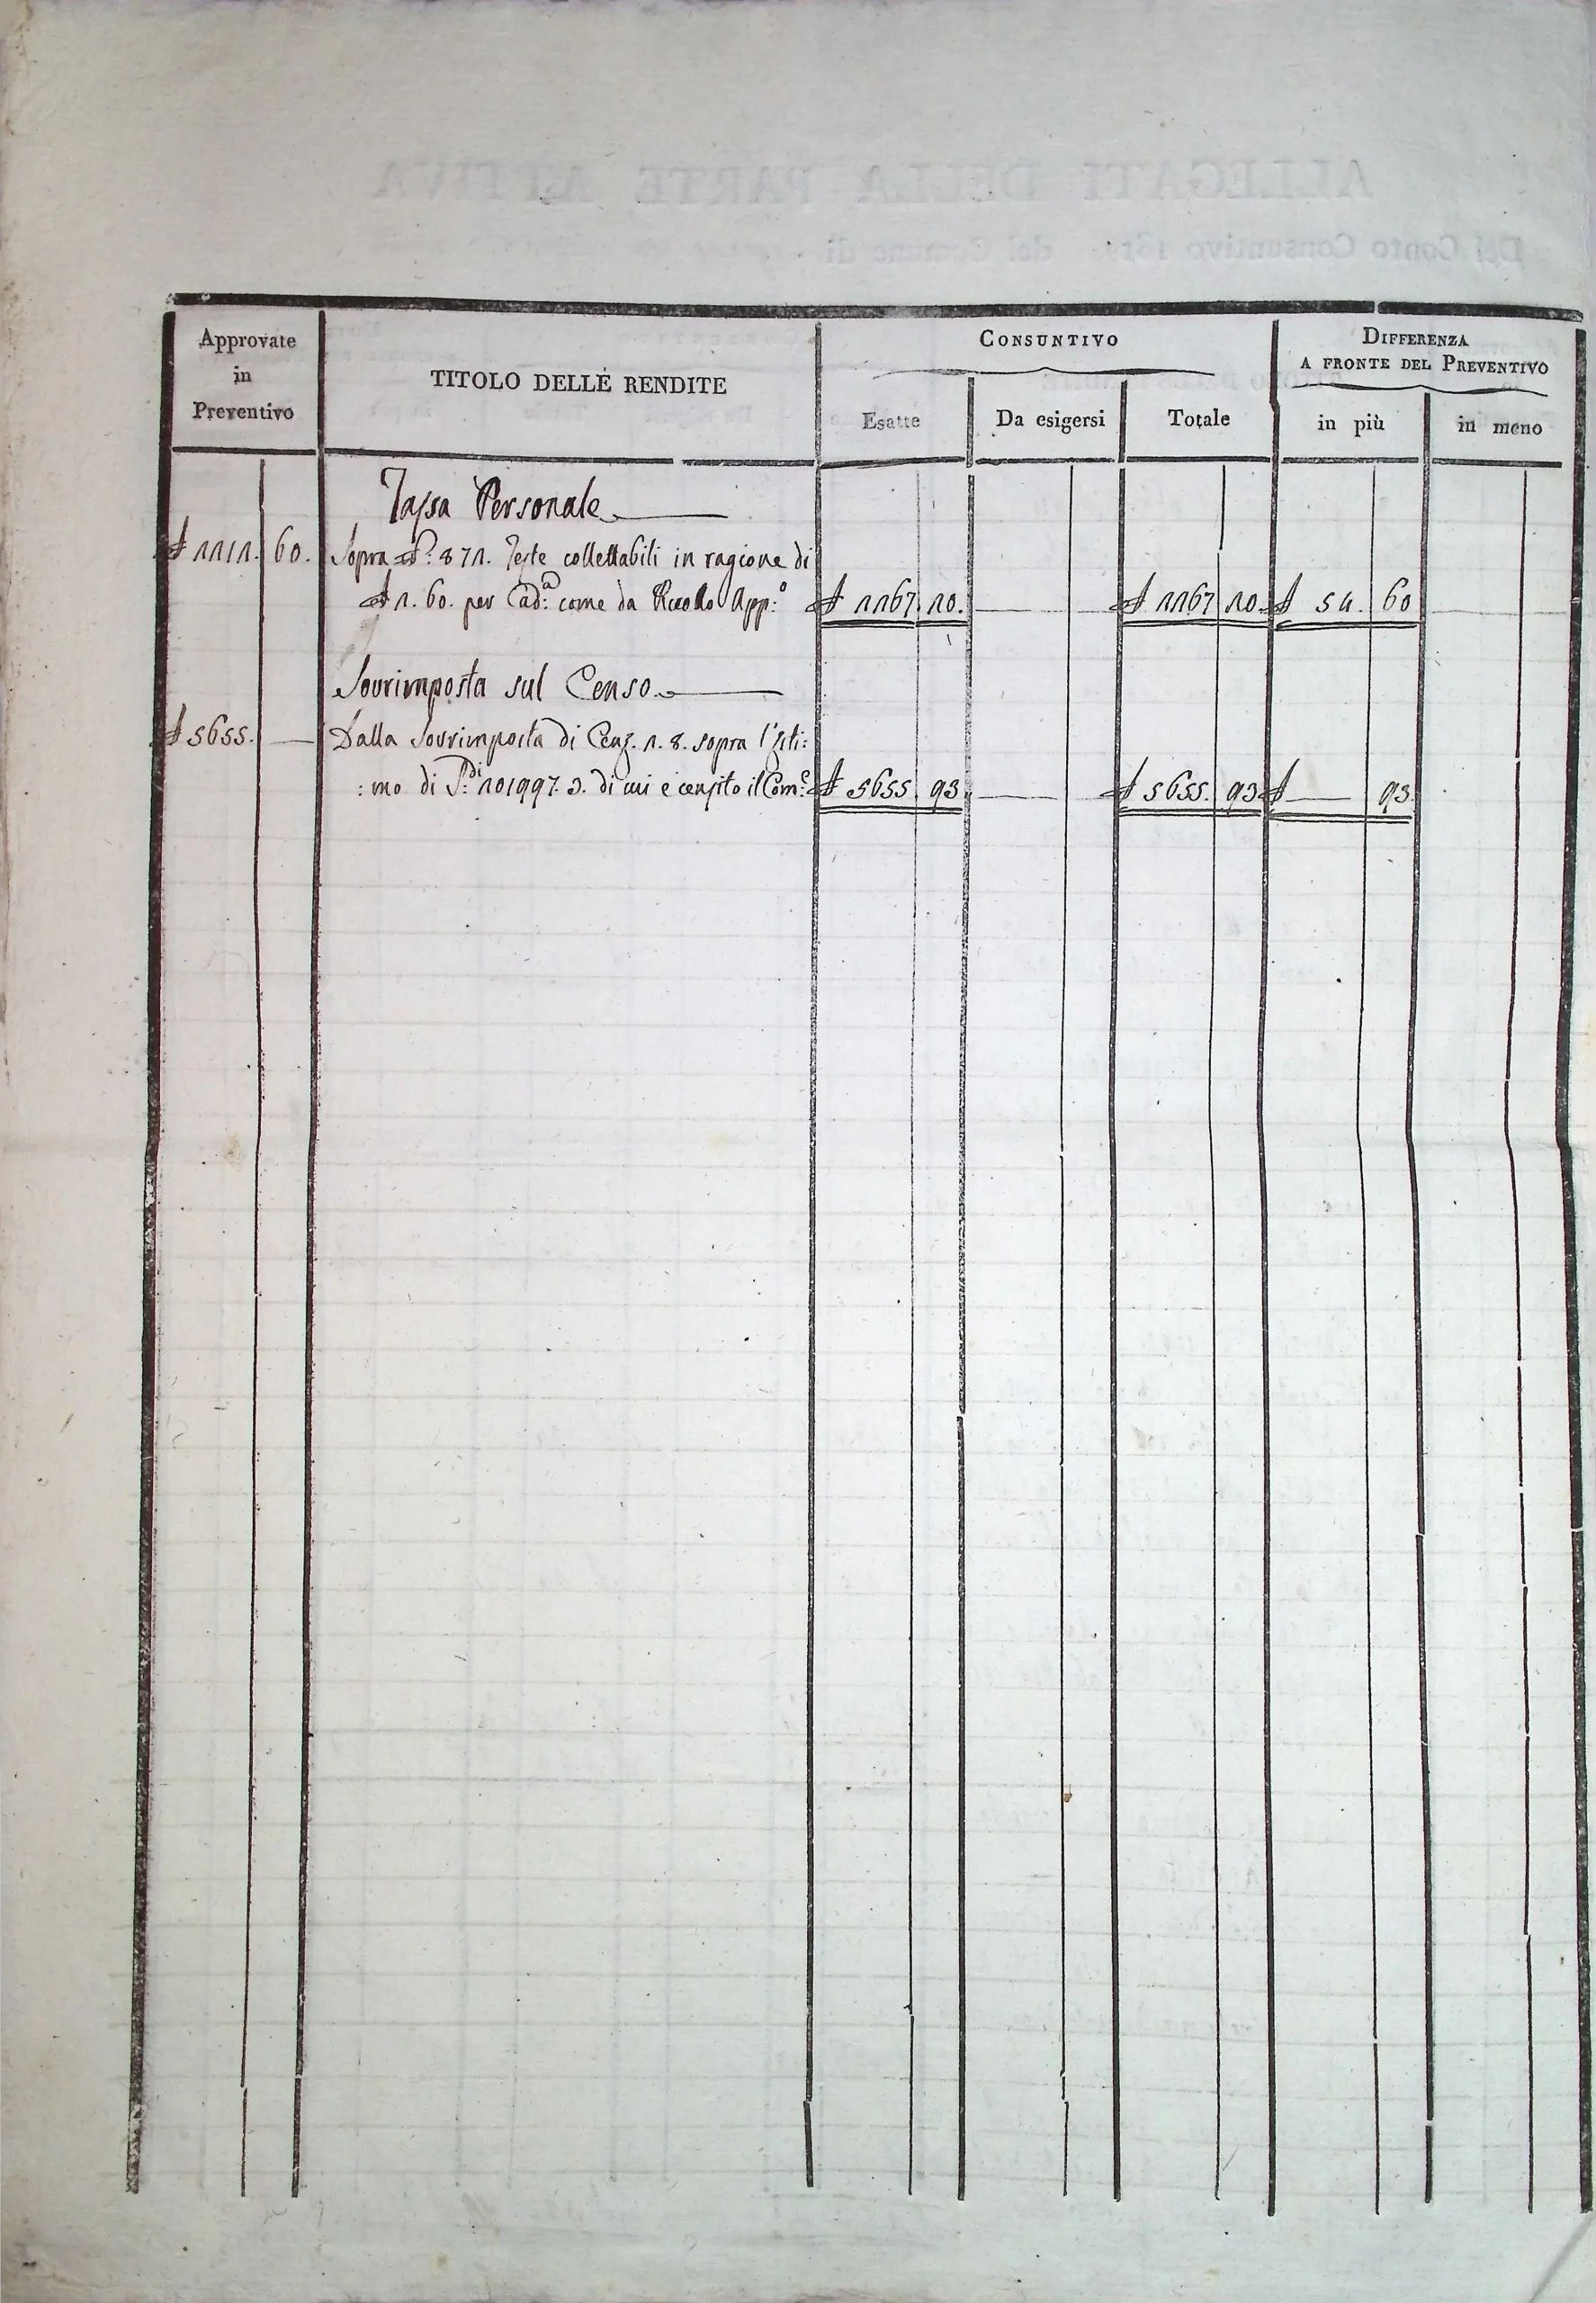 Approvate in Preventivo
TITOLO DELLE RENDITE
CONSUNTIVO
Esatte
Da esigersi
Totale
DIFFERENZA
A FRONTE DEL PREVENTIVO
in più
in meno
Tassa Personale
£ 1111. 60. Sopra N.º 871. Teste collettabili in ragione di
£ 1. 60. per Cad.ª come da Ruollo App.º £ 1167. 10. £ 1167 10. £ 54. 60
Sovrimposta sul Censo.
£ 5655. Dalla Sovrimposta di Cenz. 1. 8. sopra l'Esti:
:mo di S.di 101997. 3. di cui è censito il Com.e £ 5655. 93. £ 5655. 93 £ 93.